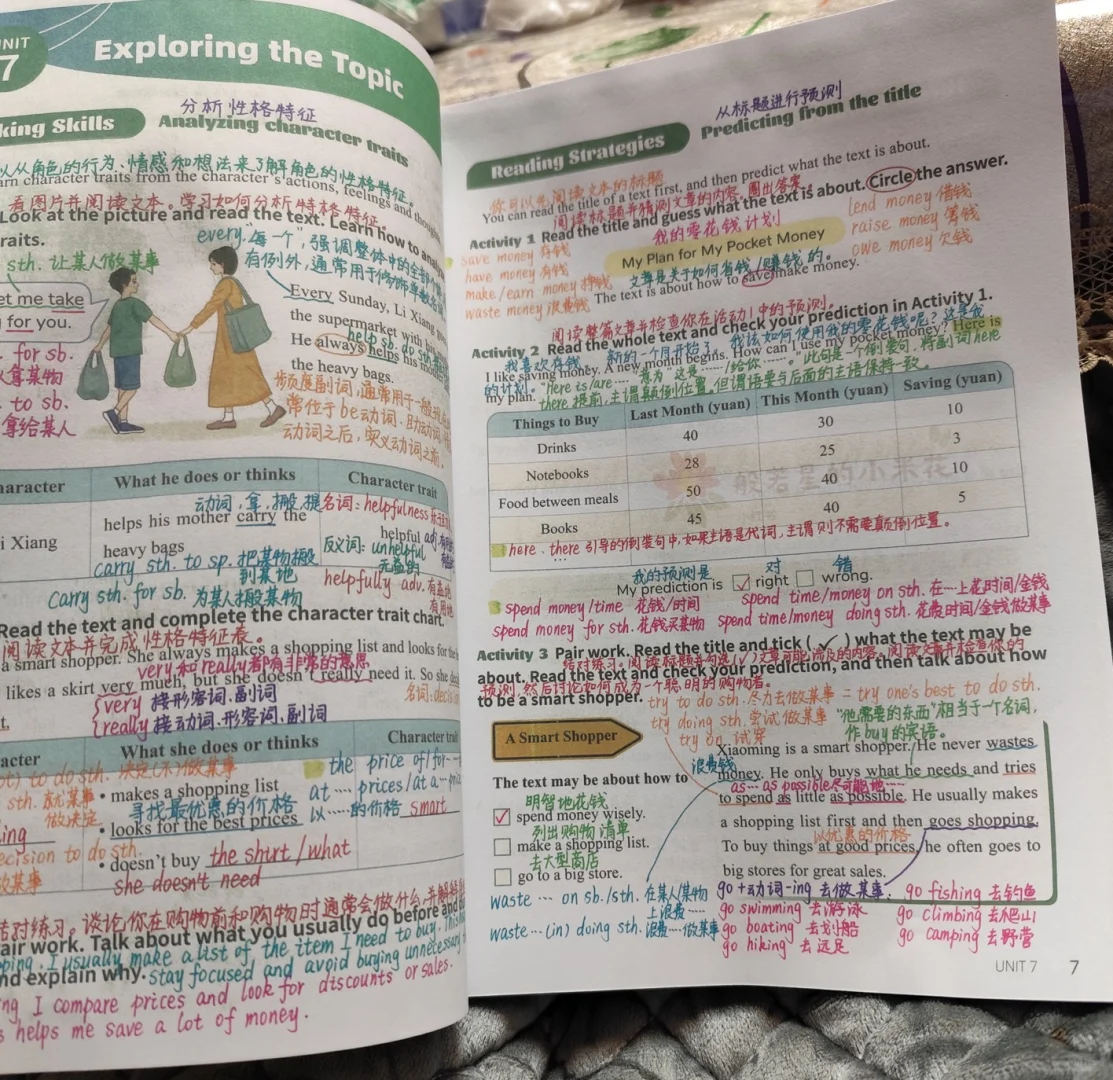 UNIT
7
Exploring the Topic
分析性格特征
king Skills
Analyzing character traits
以从角色的行为、情感和想法来了解角色的性格特征。
arn character traits from the character's actions, feelings and thoughts
看图片并阅读文本。学习如何分析特格特征
Look at the picture and read the text. Learn how to analy
raits.
every.每一个",强调整体中的全部
sth. 让某人做某事
有例外,通常用于修饰单数名
et me take
for you.
Every Sunday, Li Xiang
the supermarket with
help sb. do sth
He always helps his mo
the heavy bags.
. for sb.
拿某物
. to sb.
拿给某人
频度副词,通常用于一般现
常位于be动词、助动词
动词之后,实义动词之前
aracter
What he does or thinks
Character trait
动词,拿,搬,提
名词: helpfulness
i Xiang
helps his mother carry the
heavy bags
helpful adj.
反义词: unhelpful
无益的
carry sth. to sp. 把某物搬
到某地
helpfully adv.
carry sth. for sb. 为某人搬某物
Read the text and complete the character trait chart.
阅读文本并完成性格特征表。
a smart shopper. She always makes a shopping list and looks for the
very和really都有非常的意思
likes a skirt very much, but she doesn't really need it. So she
very 接形容词、副词
名词:
t.
really 接动词、形容词、副词
acter
What she does or thinks
Character trai
to do sth. 决定(不)做某事
• makes a shopping list
the price of/for
寻找最优惠的价格
at … prices/at a …
做决定
• looks for the best prices
以……的价格
smart
ing
ecision to do sth.
• doesn't buy the shirt/what
she doesn't need
结对练习。谈论你在购物前和购物时通常会做什么,并解释
air work. Talk about what you usually do before and
ping. I usually make a list of the item I need to buy.
nd explain why.
stay focused and avoid buying unnecessary
ing I compare prices and look for discounts or sales.
s helps me save a lot of money.
从标题进行预测
Reading Strategies
Predicting from the title
你可以先阅读文本的标题
You can read the title of a text first, and then predict what the text is about.
阅读标题并猜测文章的内容,圈出答案
Activity 1 Read the title and guess what the text is about. Circle the answer.
我的零花钱计划
lend money 借钱
save money 存钱
My Plan for My Pocket Money
raise money 筹钱
have money 有钱
文章是关于如何省钱/赚钱的。
owe money 欠钱
make/earn money 挣钱
The text is about how to save/make money.
waste money 浪费钱
阅读整篇文章并检查你在活动1中的预测。
Activity 2 Read the whole text and check your prediction in Activity 1.
我喜欢存钱。新的一个月开始了。我该如何使用我的零花钱呢?这是我
I like saving money. A new month begins. How can I use my pocket money? Here is
的计划。
my plan.
"Here is/are…… 意为"这是……/给你……。"此句是一个倒装句,将副词 here
there 提前,主谓颠倒位置,但谓语要与后面的主语保持一致。
Things to Buy Last Month (yuan) This Month (yuan) Saving (yuan)
Drinks 40 30 10
Notebooks 28 25 3
Food between meals 50 40 10
Books 45 40 5
般若星的小米花
here、there 引导的倒装句中,如果主语是代词,主谓则不需要颠倒位置。
我的预测是 对 错
My prediction is right wrong.
spend money/time 花钱/时间
spend time/money on sth. 在…上花时间/金钱
spend money for sth. 花钱买某物
spend time/money doing sth. 花费时间/金钱做某事
Activity 3 Pair work. Read the title and tick (✓) what the text may be
结对练习。阅读标题并勾选(✓)文章可能涉及的内容。阅读文章并检查你的
about. Read the text and check your prediction, and then talk about how
预测,然后讨论如何成为一个聪明的购物者。
to be a smart shopper.
try to do sth. 尽力去做某事 = try one's best to do sth.
try doing sth. 尝试做某事
try on 试穿
"他需要的东西"相当于一个名词,
作buy的宾语。
A Smart Shopper
The text may be about how to
明智地花钱
spend money wisely.
列出购物清单
make a shopping list.
去大型商店
go to a big store.
Xiaoming is a smart shopper. He never wastes
浪费钱
money. He only buys what he needs and tries
as… as possible 尽可能地……
to spend as little as possible. He usually makes
a shopping list first and then goes shopping.
以优惠的价格
To buy things at good prices, he often goes to
big stores for great sales.
waste … on sb./sth. 在某人/某物
上浪费……
waste…(in) doing sth. 浪费…做某事
go+动词-ing 去做某事.
go fishing 去钓鱼
go swimming 去游泳
go climbing 去爬山
go boating 去划船
go camping 去野营
go hiking 去远足
UNIT 7 7